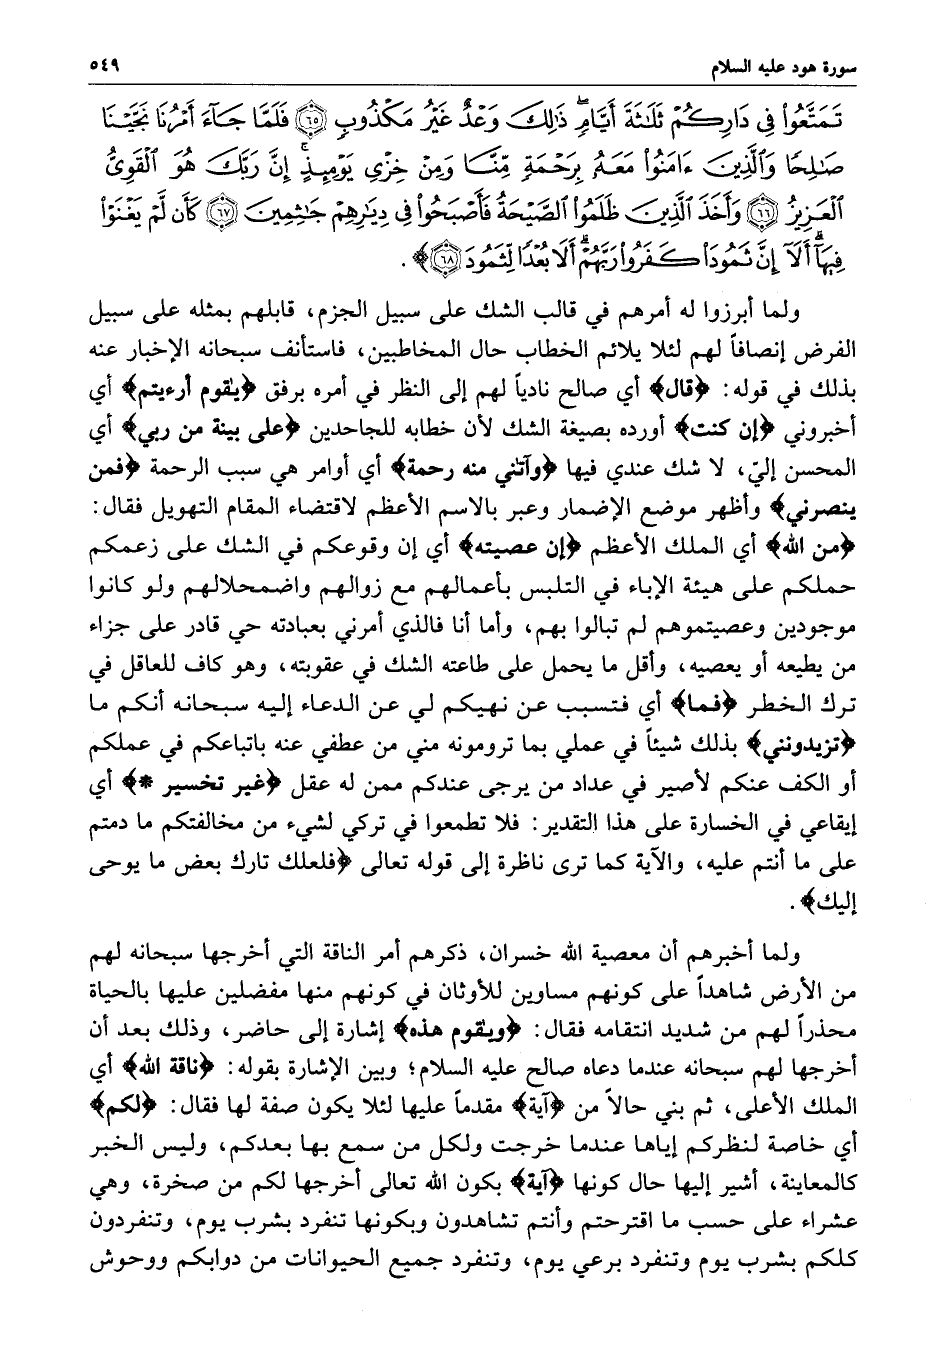 سورة هود عليه السلام ٥٤٩
تَمَتَّعُوا۟ فِى دَارِكُمْ ثَلَٰثَةَ أَيَّامٍۢ ۖ ذَٰلِكَ وَعْدٌ غَيْرُ مَكْذُوبٍۢ ﴿٦٥﴾ فَلَمَّا جَآءَ أَمْرُنَا نَجَّيْنَا
صَٰلِحًۭا وَٱلَّذِينَ ءَامَنُوا۟ مَعَهُۥ بِرَحْمَةٍۢ مِّنَّا وَمِنْ خِزْىِ يَوْمِئِذٍ ۗ إِنَّ رَبَّكَ هُوَ ٱلْقَوِىُّ
ٱلْعَزِيزُ ﴿٦٦﴾ وَأَخَذَ ٱلَّذِينَ ظَلَمُوا۟ ٱلصَّيْحَةُ فَأَصْبَحُوا۟ فِى دِيَٰرِهِمْ جَٰثِمِينَ ﴿٦٧﴾ كَأَن لَّمْ يَغْنَوْا۟
فِيهَآ ۗ أَلَآ إِنَّ ثَمُودَا۟ كَفَرُوا۟ رَبَّهُمْ ۗ أَلَا بُعْدًۭا لِّثَمُودَ ﴿٦٨﴾﴾ .
ولما أبرزوا له أمرهم في قالب الشك على سبيل الجزم، قابلهم بمثله على سبيل
الفرض إنصافاً لهم لئلا يلائم الخطاب حال المخاطبين، فاستأنف سبحانه الإخبار عنه
بذلك في قوله: ﴿قال﴾ أي صالح نادياً لهم إلى النظر في أمره برفق ﴿يٰقوم أرءيتم﴾ أي
أخبروني ﴿إن كنت﴾ أورده بصيغة الشك لأن خطابه للجاحدين ﴿على بينة من ربي﴾ أي
المحسن إليّ، لا شك عندي فيها ﴿وآتٰني منه رحمة﴾ أي أوامر هي سبب الرحمة ﴿فمن
ينصرني﴾ وأظهر موضع الإضمار وعبر بالاسم الأعظم لاقتضاء المقام التهويل فقال:
﴿من الله﴾ أي الملك الأعظم ﴿إن عصيته﴾ أي إن وقوعكم في الشك على زعمكم
حملكم على هيئة الإباء في التلبس بأعمالهم مع زوالهم واضمحلالهم ولو كانوا
موجودين وعصيتموهم لم تبالوا بهم، وأما أنا فالذي أمرني بعبادته حي قادر على جزاء
من يطيعه أو يعصيه، وأقل ما يحمل على طاعته الشك في عقوبته، وهو كاف للعاقل في
ترك الخطر ﴿فما﴾ أي فتسبب عن نهيكم لي عن الدعاء إليه سبحانه أنكم ما
﴿تزيدونني﴾ بذلك شيئاً في عملي بما ترومونه مني من عطفي عنه باتباعكم في عملكم
أو الكف عنكم لأصير في عداد من يرجى عندكم ممن له عقل ﴿غير تخسير *﴾ أي
إيقاعي في الخسارة على هذا التقدير: فلا تطمعوا في تركي لشيء من مخالفتكم ما دمتم
على ما أنتم عليه، والآية كما ترى ناظرة إلى قوله تعالى ﴿فلعلك تارك بعض ما يوحى
إليك﴾ .
ولما أخبرهم أن معصية الله خسران، ذكرهم أمر الناقة التي أخرجها سبحانه لهم
من الأرض شاهداً على كونهم مساوين للأوثان في كونهم منها مفضلين عليها بالحياة
محذراً لهم من شديد انتقامه فقال: ﴿ويٰقوم هذه﴾ إشارة إلى حاضر، وذلك بعد أن
أخرجها لهم سبحانه عندما دعاه صالح عليه السلام؛ وبين الإشارة بقوله: ﴿ناقة الله﴾ أي
الملك الأعلى، ثم بني حالاً من ﴿آية﴾ مقدماً عليها لئلا يكون صفة لها فقال: ﴿لكم﴾
أي خاصة لنظركم إياها عندما خرجت ولكل من سمع بها بعدكم، وليس الخبر
كالمعاينة، أشير إليها حال كونها ﴿آية﴾ بكون الله تعالى أخرجها لكم من صخرة، وهي
عشراء على حسب ما اقترحتم وأنتم تشاهدون وبكونها تنفرد بشرب يوم، وتنفردون
كلكم بشرب يوم وتنفرد برعي يوم، وتنفرد جميع الحيوانات من دوابكم ووحوش